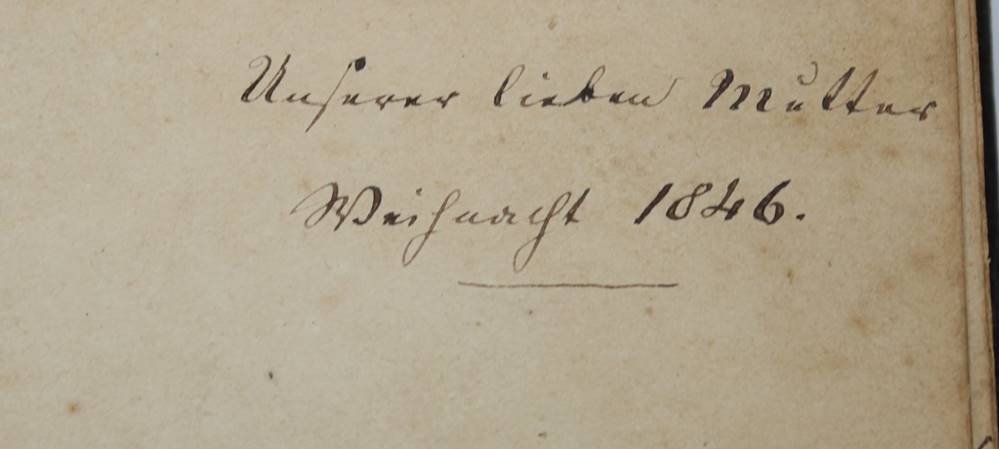 Unserer lieben Mutter
Weihnacht 1846.